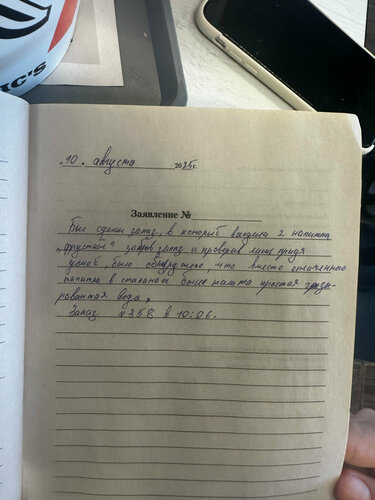 nc's
„10" августа 2025г.
Заявление №
Был сделан заказ, в который входила 2 напитка
„фрустайл" забрав заказ и проверив лишь придя
домой, было обнаружено, что вместо оплаченного
напитка в стаканах была налита простая газированная вода.
Заказ №358 в 10:06.